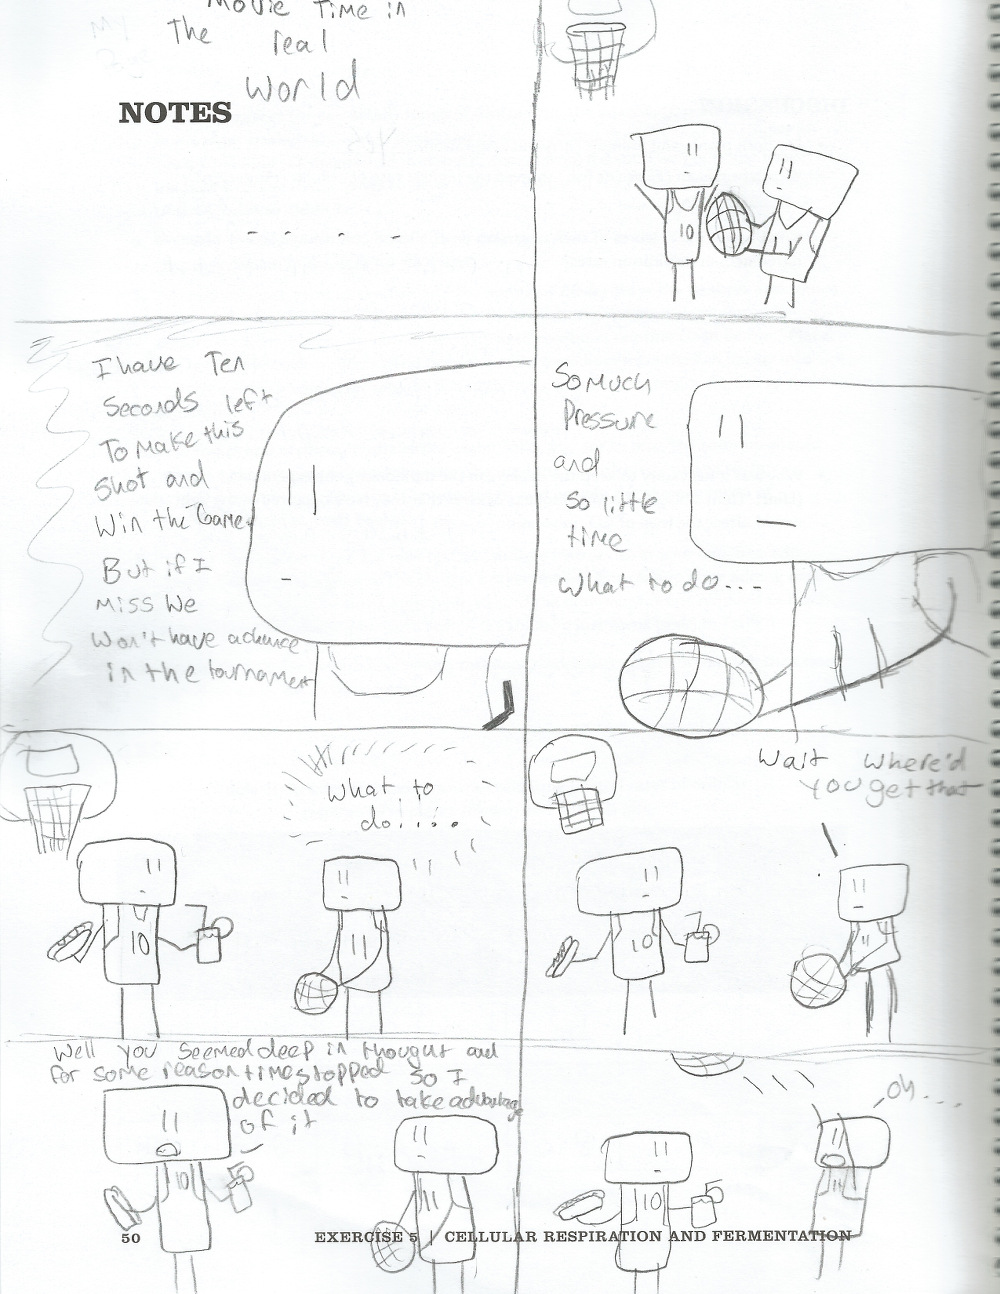 Movie Time in
The real
World
NOTES
10
11
I have Ten
Seconds left
To Make this
Shot and
Win the Game
But if I
Miss We
Won't have a chance
in the tournament
So Much
Pressure
and
So little
time
What to do...
What to
do.....
10
11
Wait Where'd
You get that
10
11
Well you seemed deep in thought and
for some reason time stopped so I
decided to take advantage
of it
10
11
oh...
10
11
50
EXERCISE 5 | CELLULAR RESPIRATION AND FERMENTATION